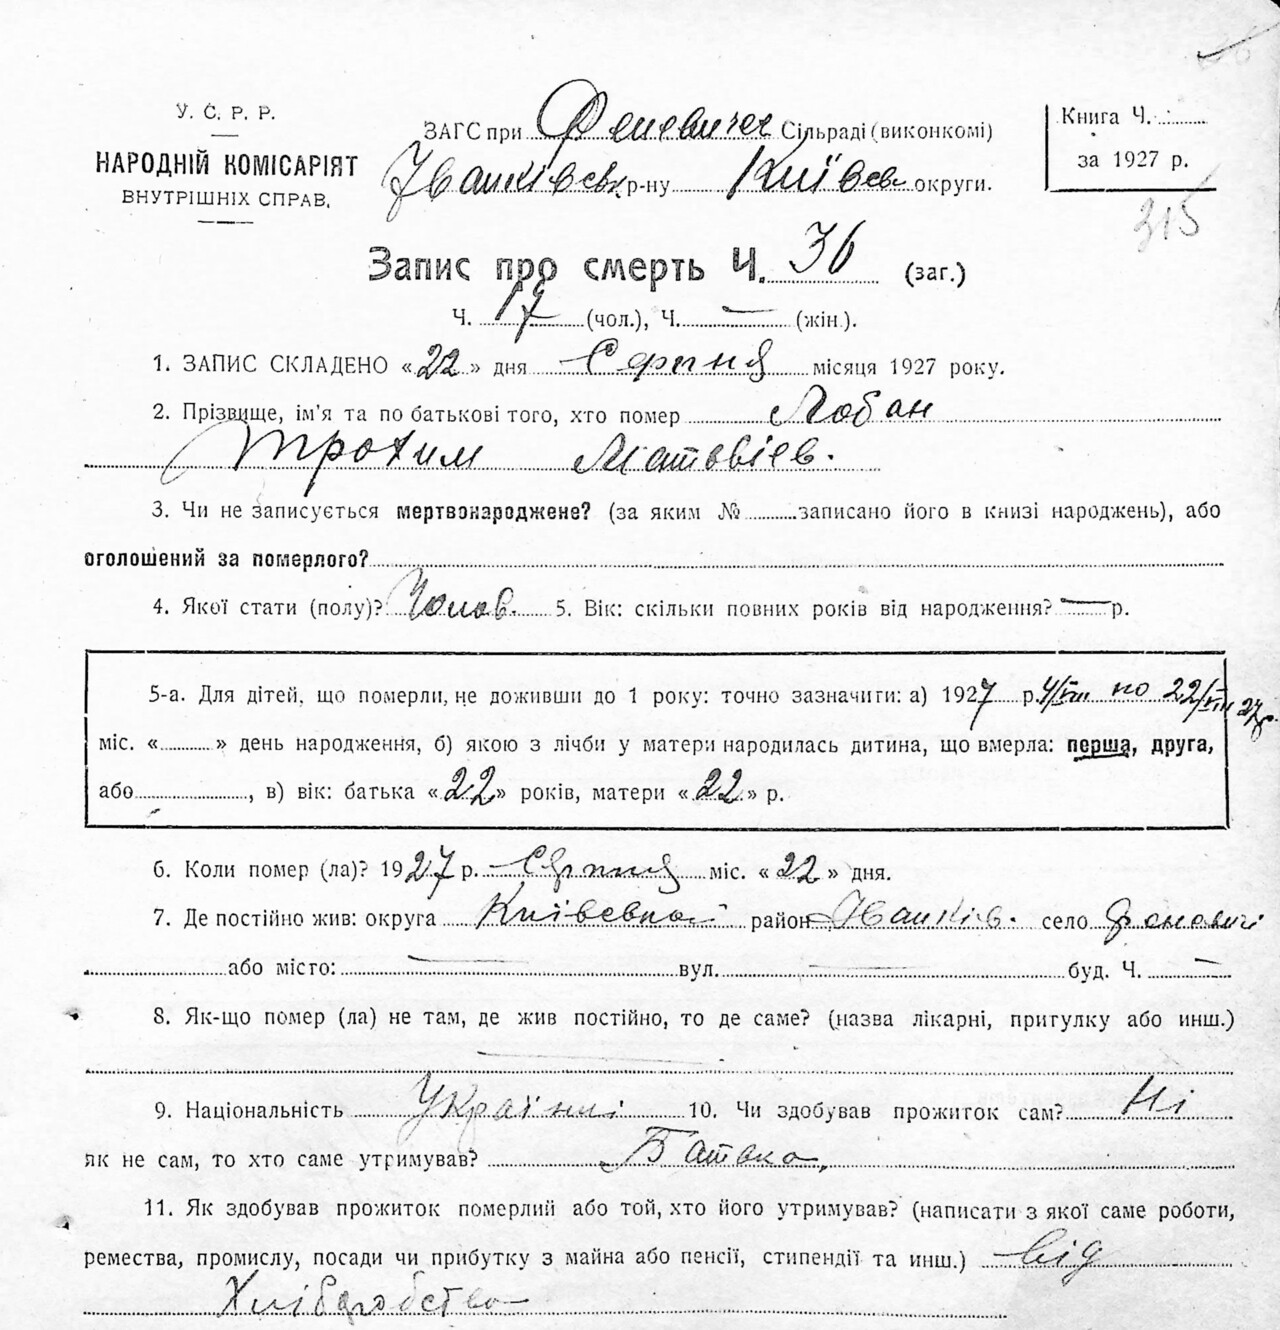 У. С. Р. Р.
НАРОДНІЙ КОМІСАРІЯТ
ВНУТРІШНІХ СПРАВ.
ЗАГС при Феневичех Сільраді (виконкомі)
Іванківськ р-ну Київськ округи.
Книга Ч.
за 1927 р.
315
Запис про смерть Ч. 36 (заг.)
Ч. 19 (чол.), Ч. — (жін.).
1. ЗАПИС СКЛАДЕНО «22» дня Серпня місяця 1927 року.
2. Прізвище, ім'я та по батькові того, хто помер Лобан
Трохим Матвіев.
3. Чи не записується мертвонароджене? (за яким № записано його в книзі народжень), або
оголошений за померлого?
4. Якої стати (полу)? Чолов. 5. Вік: скільки повних років від народження? — р.
5-а. Для дітей, що померли, не доживши до 1 року: точно зазначити: а) 1927 р. 4/VIII по 22/VIII 27 р.
міс. « » день народження, б) якою з лічби у матери народилась дитина, що вмерла: перша, друга,
або , в) вік: батька «22» років, матери «22» р.
6. Коли помер (ла)? 1927 р. Серпня міс. «22» дня.
7. Де постійно жив: округа Київська район Іванків. село Феневичі
або місто: — вул. — буд. Ч. —
8. Як-що помер (ла) не там, де жив постійно, то де саме? (назва лікарні, пригулку або инш.)
9. Національність Україн 10. Чи здобував прожиток сам? Ні
як не сам, то хто саме утримував? Батько.
11. Як здобував прожиток померлий або той, хто його утримував? (написати з якої саме роботи,
ремества, промислу, посади чи прибутку з майна або пенсії, стипендії та инш.) від
Хліборобства